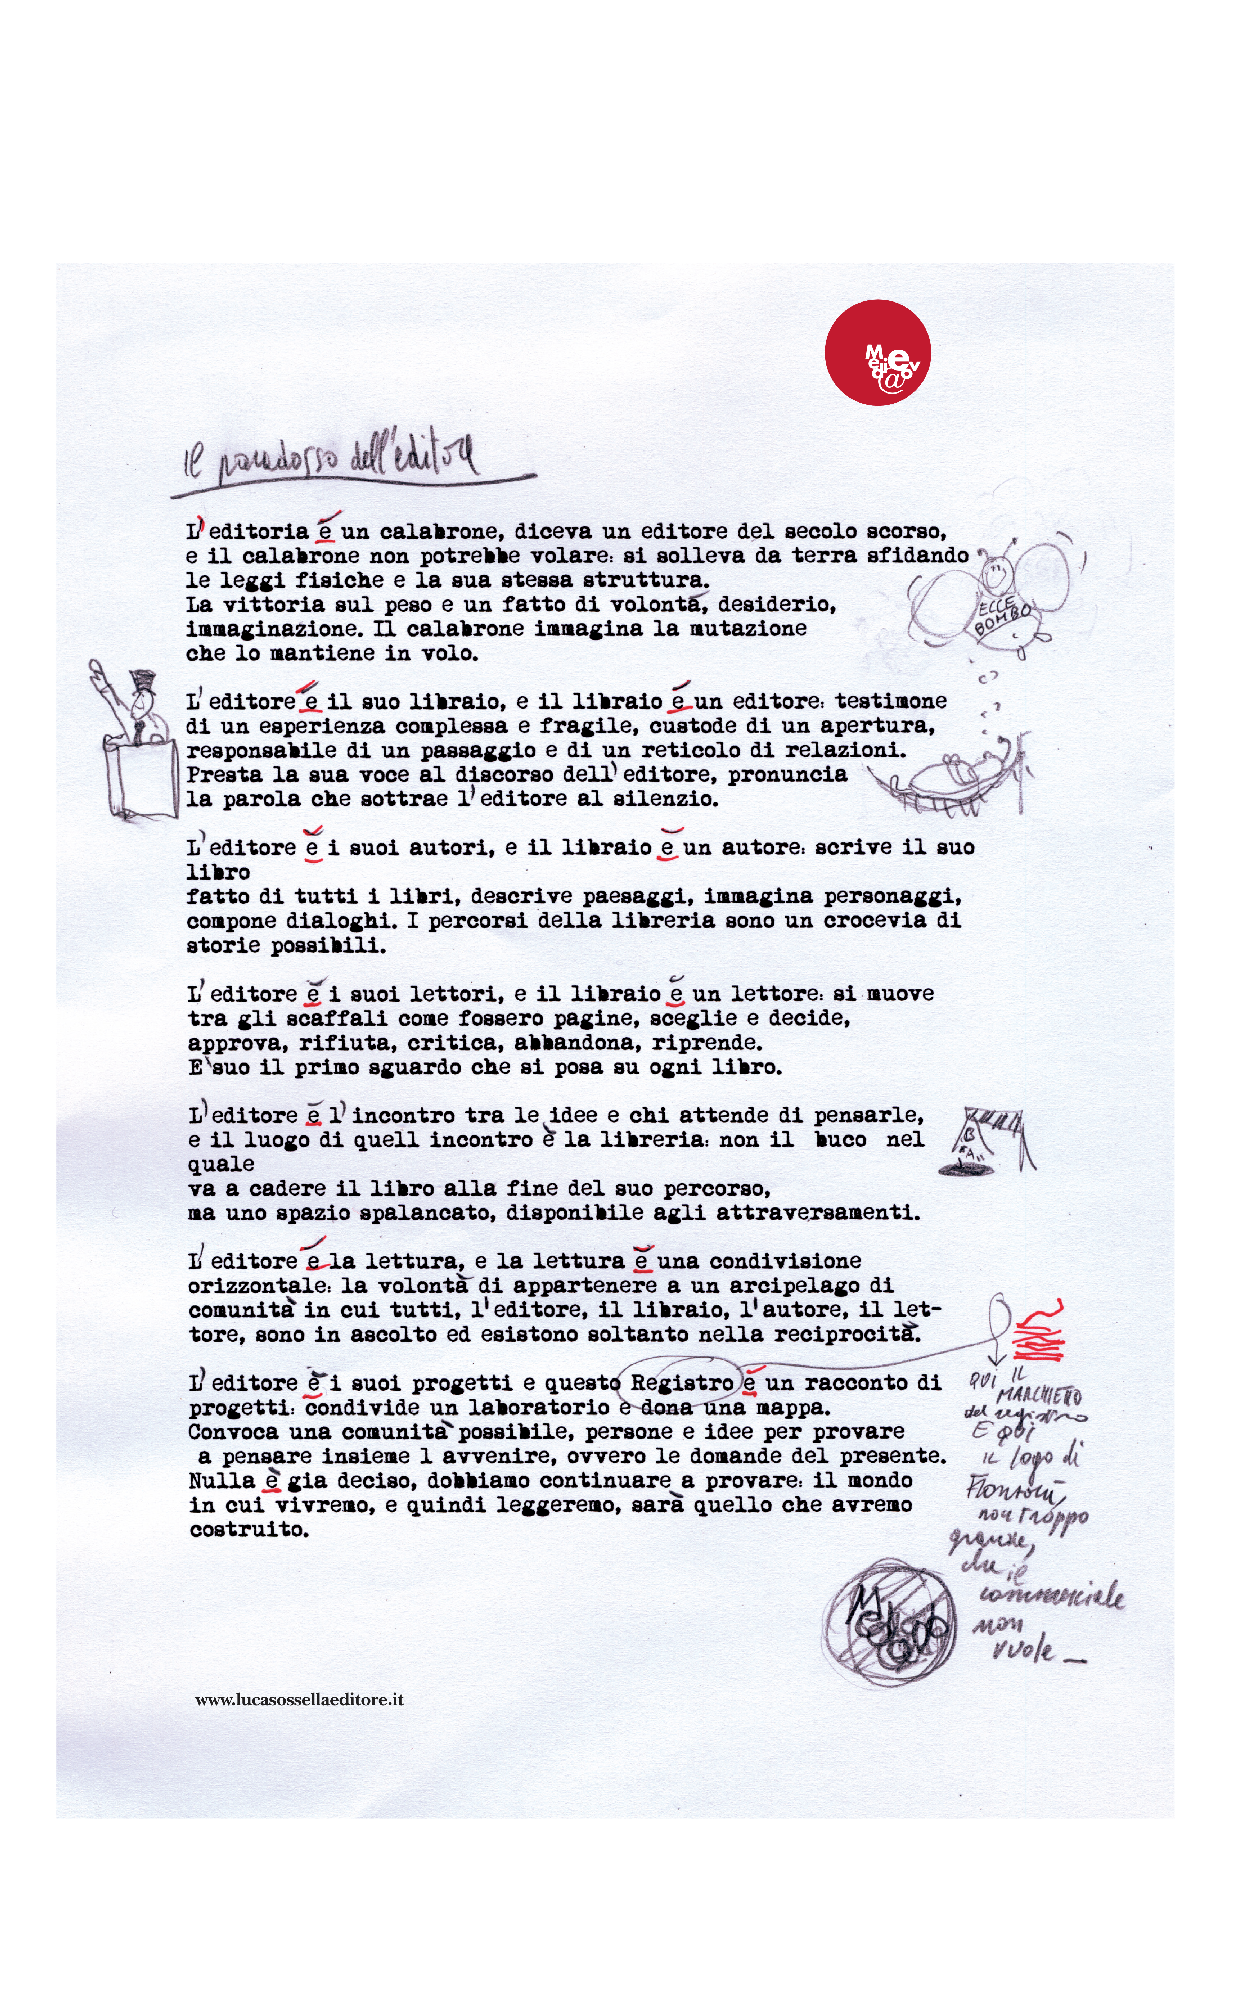 Medi@ev@
il paradosso dell'editore
L'editoria è un calabrone, diceva un editore del secolo scorso,
e il calabrone non potrebbe volare: si solleva da terra sfidando
le leggi fisiche e la sua stessa struttura.
La vittoria sul peso e un fatto di volontà, desiderio,
immaginazione. Il calabrone immagina la mutazione
che lo mantiene in volo.
ECCE
BOMBO
L'editore è il suo libraio, e il libraio è un editore: testimone
di un esperienza complessa e fragile, custode di un apertura,
responsabile di un passaggio e di un reticolo di relazioni.
Presta la sua voce al discorso dell'editore, pronuncia
la parola che sottrae l'editore al silenzio.
L'editore è i suoi autori, e il libraio è un autore: scrive il suo
libro
fatto di tutti i libri, descrive paesaggi, immagina personaggi,
compone dialoghi. I percorsi della libreria sono un crocevia di
storie possibili.
L'editore è i suoi lettori, e il libraio è un lettore: si muove
tra gli scaffali come fossero pagine, sceglie e decide,
approva, rifiuta, critica, abbandona, riprende.
E'suo il primo sguardo che si posa su ogni libro.
L'editore è l'incontro tra le idee e chi attende di pensarle,
e il luogo di quell incontro è la libreria: non il buco nel
quale
va a cadere il libro alla fine del suo percorso,
ma uno spazio spalancato, disponibile agli attraversamenti.
L'editore è la lettura, e la lettura è una condivisione
orizzontale: la volontà di appartenere a un arcipelago di
comunità in cui tutti, l'editore, il libraio, l'autore, il let-
tore, sono in ascolto ed esistono soltanto nella reciprocità.
L'editore è i suoi progetti e questo Registro è un racconto di
progetti: condivide un laboratorio e dona una mappa.
Convoca una comunità possibile, persone e idee per provare
a pensare insieme l avvenire, ovvero le domande del presente.
Nulla è gia deciso, dobbiamo continuare a provare: il mondo
in cui vivremo, e quindi leggeremo, sarà quello che avremo
costruito.
QUI IL
MARCHIETTO
del registro
E QUI
IL logo di
non troppo
grande,
che il
commerciale
non
vuole
www.lucasossellaeditore.it